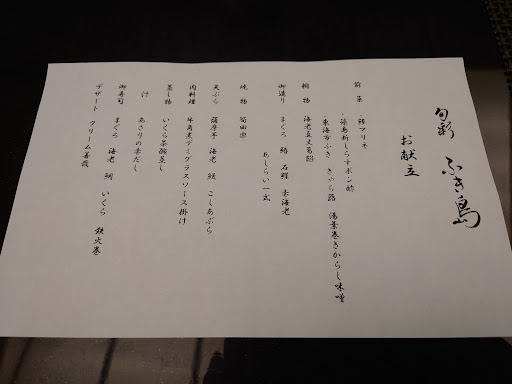 旬彩 ふき島
お献立
前菜 ・鯵マリネ
・篠島新しらすポン酢
・東海市ふき きゃら蕗 湯葉巻きからし味噌
椀物 海老真丈葛餡
御造り まぐろ 鮪 石鯛 赤海老
あしらい一式
焼物 筍田楽
天ぷら 薩摩芋 海老 鱚 こしあぶら
肉料理 牛角煮デミグラスソース掛け
蒸し物 いくら茶碗蒸し
汁 あさりの赤だし
御寿司 まぐろ 海老 鯛 いくら 鉄火巻
デザート クリーム善哉